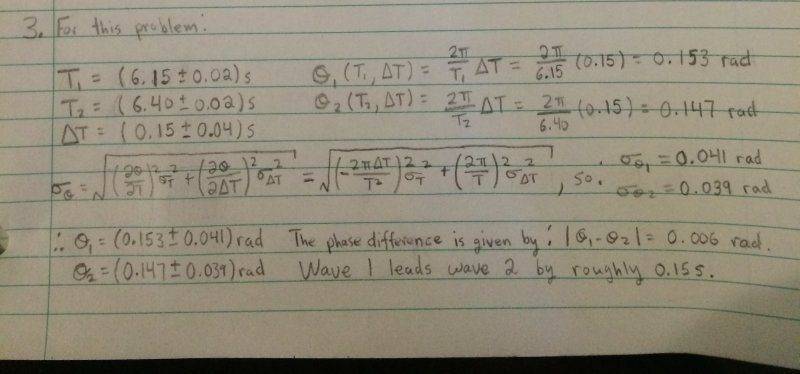 3. For this problem:
T₁ = (6.15 ± 0.02)s θ₁(T₁, ΔT) = 2π/T₁ ΔT = 2π/6.15 (0.15) = 0.153 rad
T₂ = (6.40 ± 0.02)s θ₂(T₂, ΔT) = 2π/T₂ ΔT = 2π/6.40 (0.15) = 0.147 rad
ΔT = (0.15 ± 0.04)s
σ_θ = √((∂θ/∂T)² σ_T² + (∂θ/∂ΔT)² σ_ΔT²) = √((-2πΔT/T²)² σ_T² + (2π/T)² σ_ΔT²), so: σ_θ₁ = 0.041 rad
σ_θ₂ = 0.039 rad
∴ θ₁ = (0.153 ± 0.041) rad The phase difference is given by: |θ₁-θ₂| = 0.006 rad.
θ₂ = (0.147 ± 0.039) rad Wave 1 leads wave 2 by roughly 0.15s.